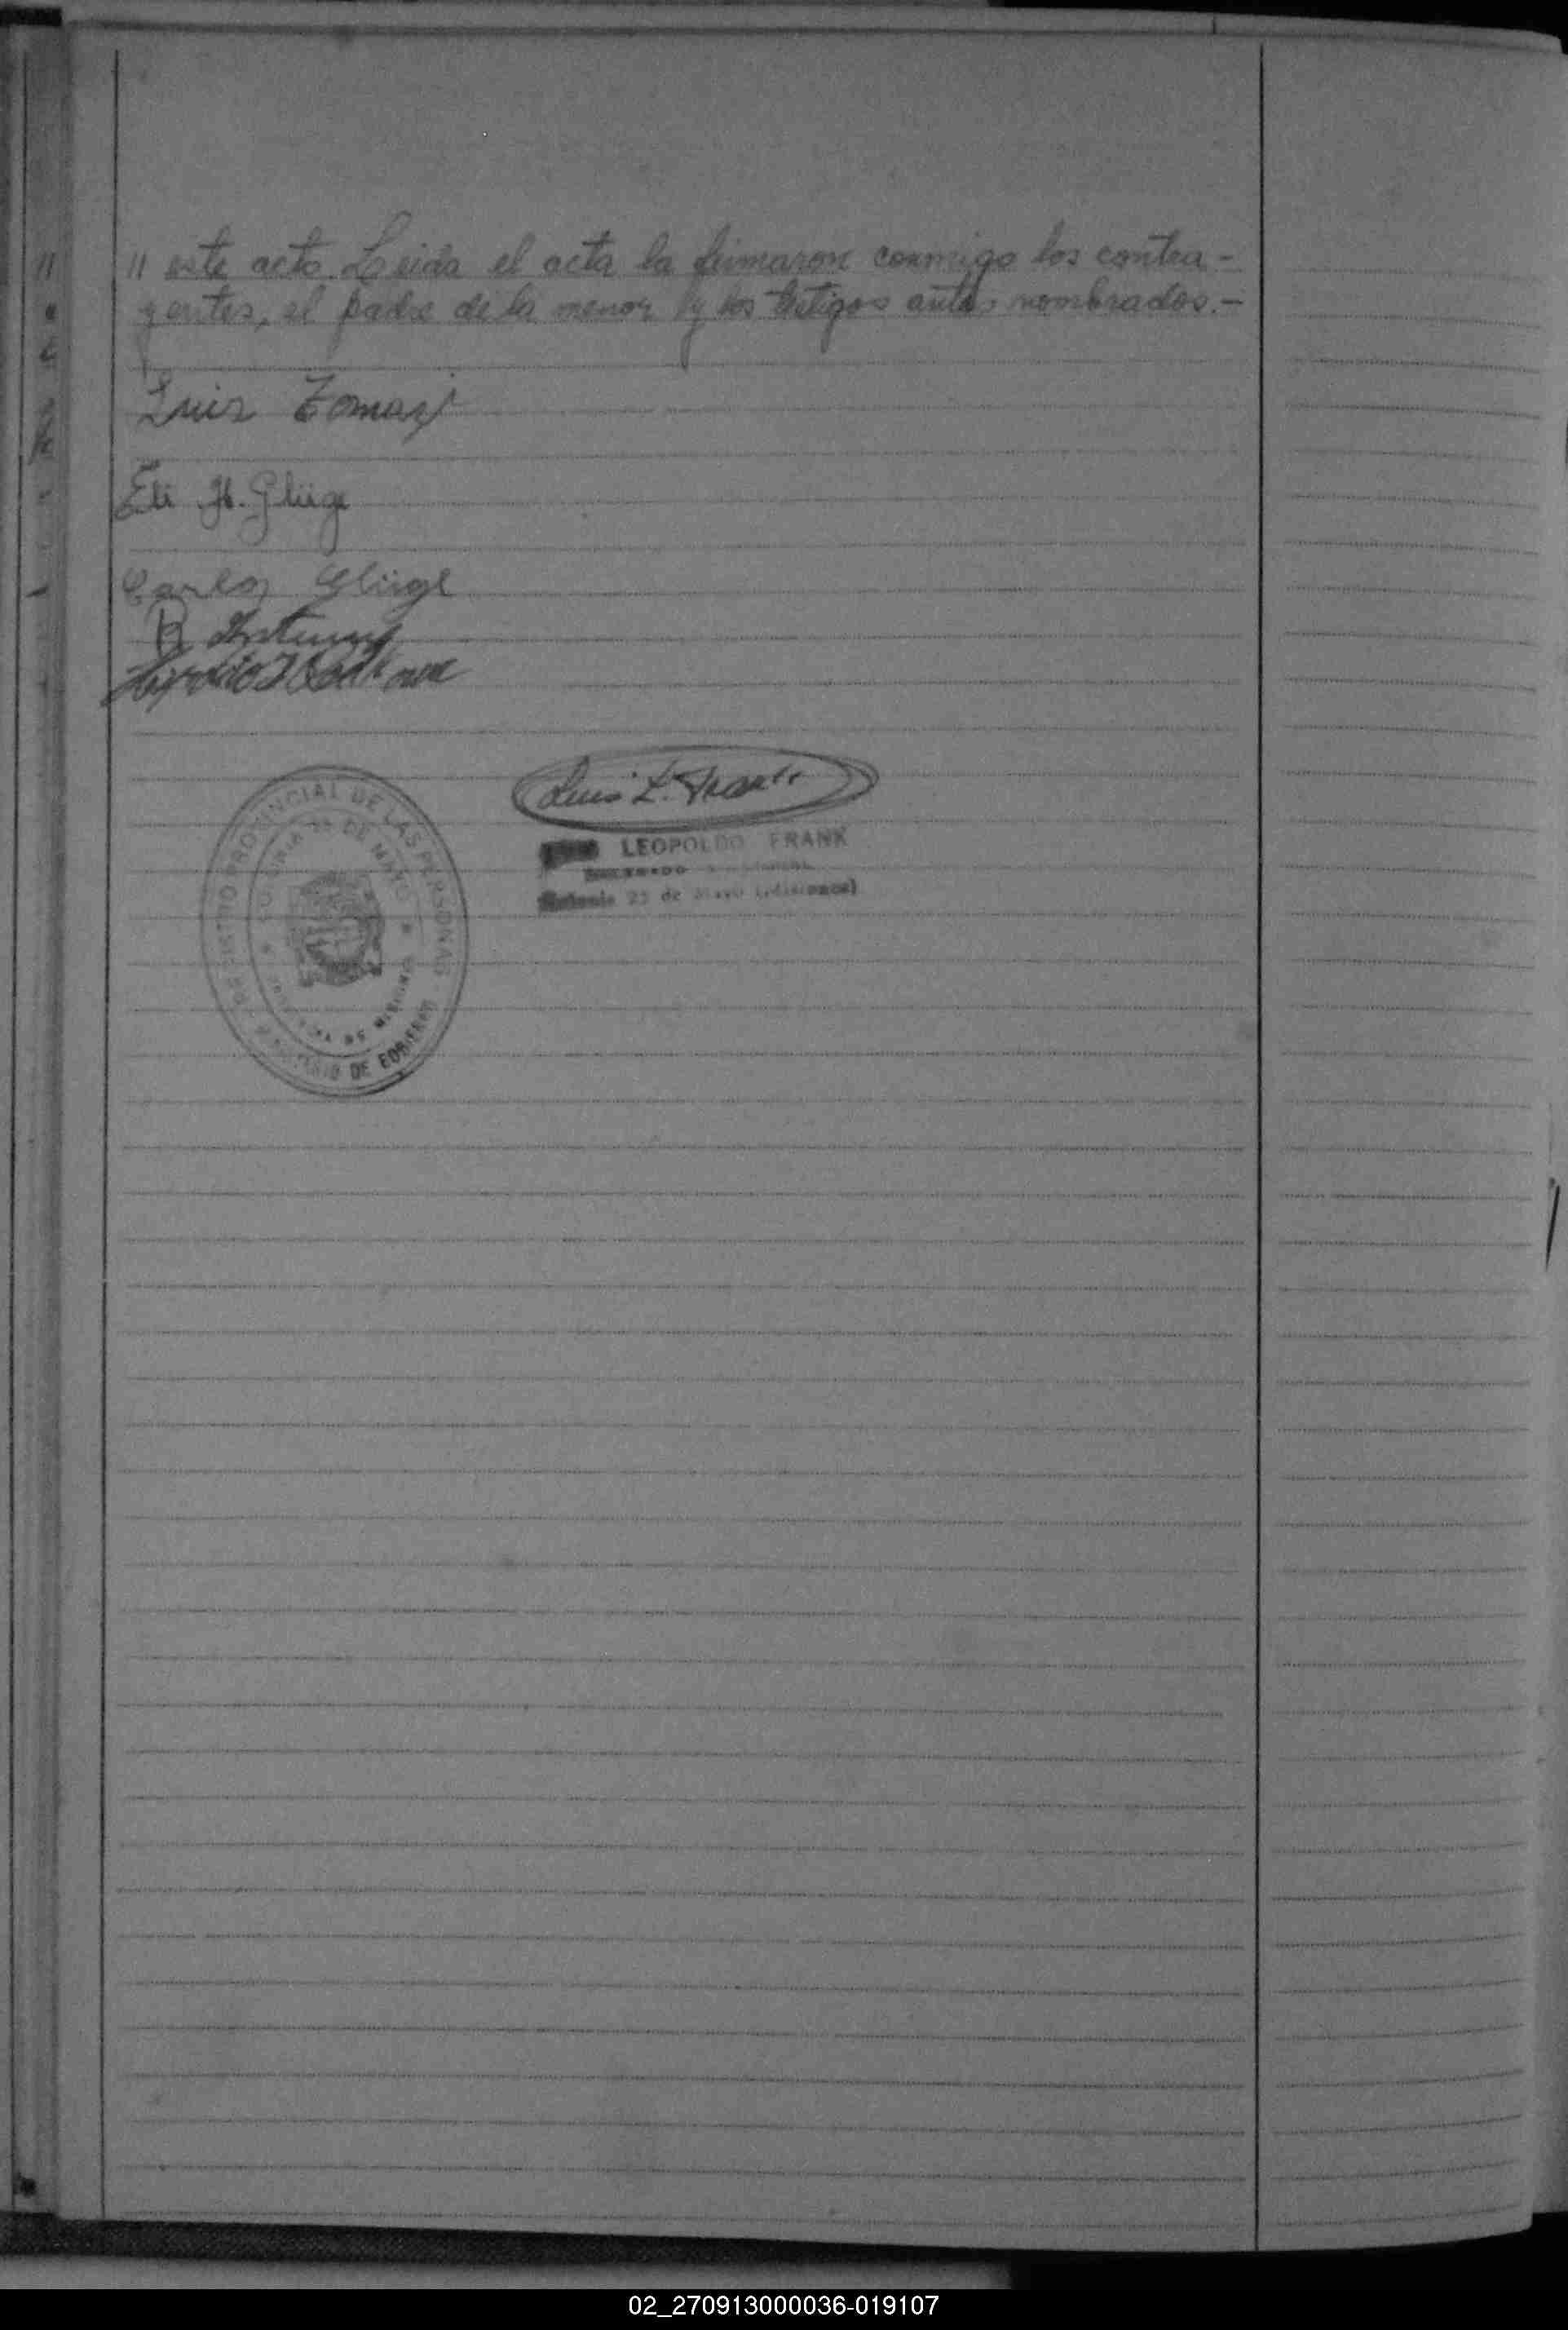 " este acto Leida el acta la firmaron conmigo los contra-
yentes, el padre de la menor y los testigos antes nombrados.-
Luis Tomasi
Eli H. Glüge
Carlos Glüge
Luis L. Frank
LEOPOLDO FRANK
Colonia 25 de Mayo (Misiones)
REGISTRO PROVINCIAL DE LAS PERSONAS
MINISTERIO DE GOBIERNO
COLONIA 25 DE MAYO
PROVINCIA DE MISIONES
02_270913000036-019107